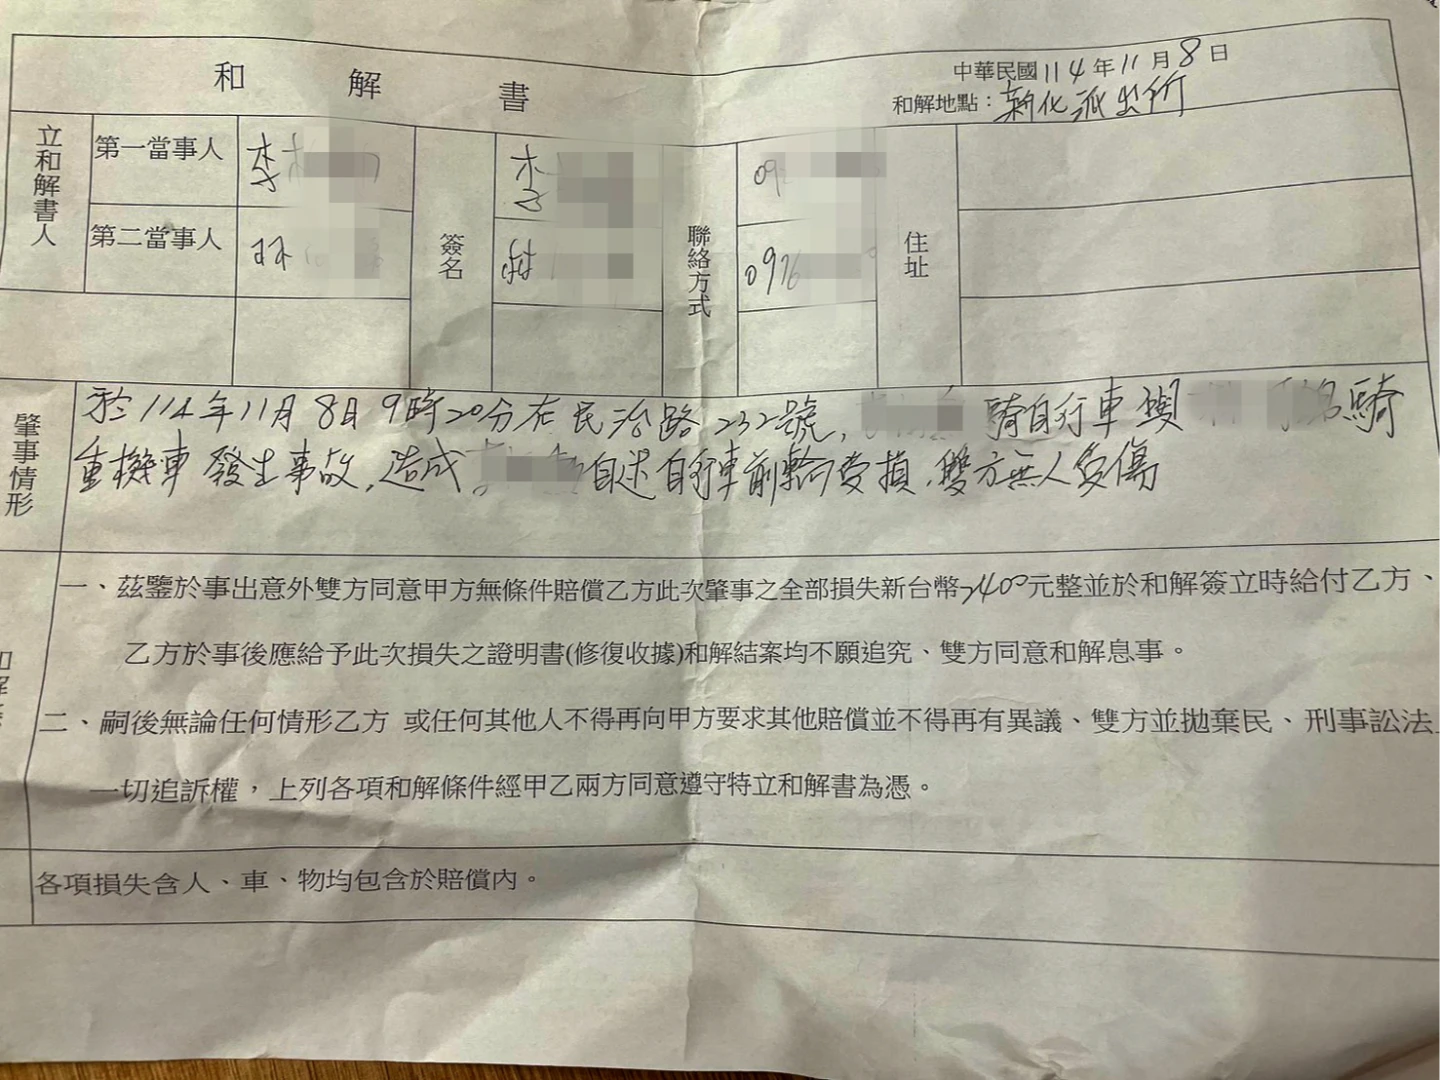 和解書
中華民國114年11月8日
和解地點：新化派出所
立和解書人
第一當事人 李
簽名 李
聯絡方式 09
住址
第二當事人 林
林
0976
肇事情形
於114年11月8日9時20分在民治路232號, 騎自行車與 騎
重機車發生事故,造成 自述自行車前輪受損,雙方無人負傷
一、茲鑒於事出意外雙方同意甲方無條件賠償乙方此次肇事之全部損失新台幣2400元整並於和解簽立時給付乙方、
乙方於事後應給予此次損失之證明書(修復收據)和解結案均不願追究、雙方同意和解息事。
二、嗣後無論任何情形乙方 或任何其他人不得再向甲方要求其他賠償並不得再有異議、雙方並拋棄民、刑事訟法
一切追訴權，上列各項和解條件經甲乙兩方同意遵守特立和解書為憑。
各項損失含人、車、物均包含於賠償內。